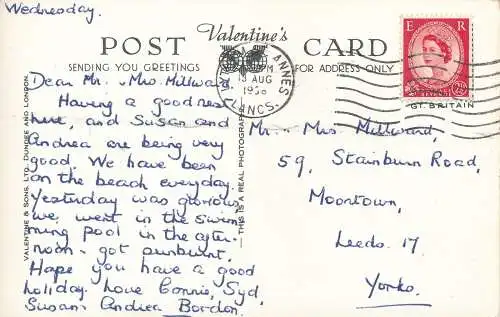 Wednesday.
Valentine's
POST CARD
SENDING YOU GREETINGS
FOR ADDRESS ONLY
Dear Mr. Mrs Millward.
Having a good rest
here, and Susan and
Andrea are being very
good. We have been
on the beach everyday.
Yesterday was glorious,
we went in the swim
ming pool in the after-
noon - got sunburnt.
Hope you have a good
holiday. Love Connie, Syd,
Susan Andrea Bordon.
VALENTINE & SONS, LTD., DUNDEE AND LONDON.
THIS IS A REAL PHOTOGRAPH
ANNES
PM
AUG
LANCS.
E R
GT. BRITAIN
Mr. Mrs Millward,
59, Stainburn Road,
Moortown,
Leeds. 17
Yorks.